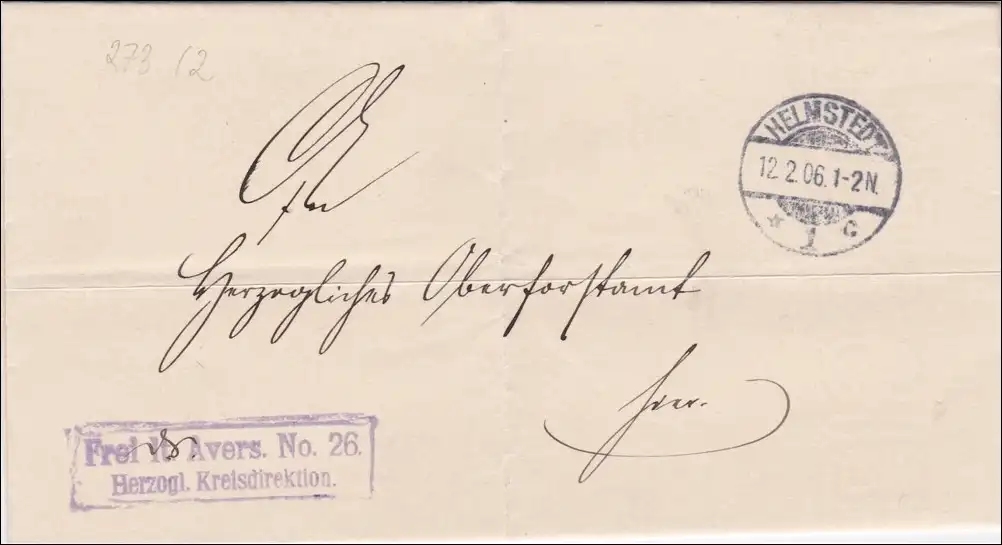 273 12
An
Herzogliches Oberforstamt
hier.
HELMSTEDT
12.2.06.1-2N.
* 1 c
Frei lt. Avers. No. 26.
Herzogl. Kreisdirektion.